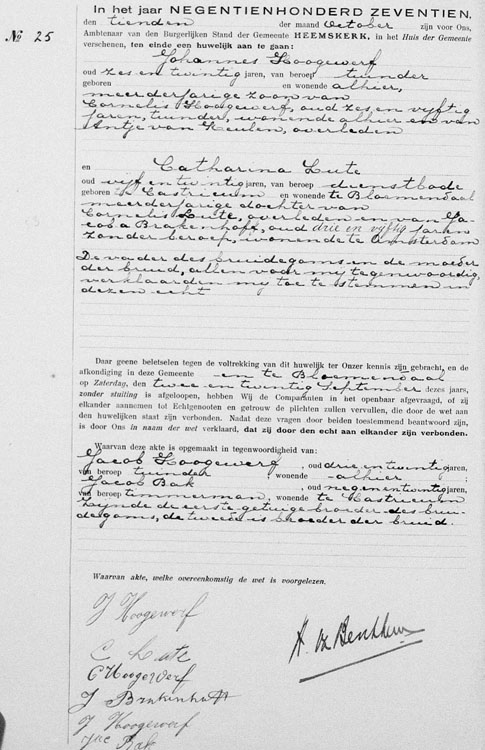 In het jaar NEGENTIENHONDERD ZEVENTIEN,
den tienden der maand October zijn voor Ons,
Nº 25
Ambtenaar van den Burgerlijken Stand der Gemeente HEEMSKERK, in het Huis der Gemeente
verschenen, ten einde een huwelijk aan te gaan:
Johannes Hoogewerf
oud zes en twintig jaren, van beroep tuinder
geboren en wonende alhier,
meerderjarige zoon van
Cornelis Hoogewerf, oud zes en vijftig
jaren, tuinder, wonende alhier en van
Antje van Keulen, overleden
en Catharina Lute
oud vijf en twintig jaren, van beroep dienstbode
geboren te Castricum en wonende te Bloemendaal
meerderjarige dochter van
Cornelis Lute, overleden en van Ja-
coba Brakenhoff, oud drie en vijftig jaren
zonder beroep, wonende te Amsterdam
De vader des bruidegoms en de moeder
der bruid, allen voor mij tegenwoordig,
verklaarden mij toe te stemmen in
dezen echt
Daar geene beletselen tegen de voltrekking van dit huwelijk ter Onzer kennis zijn gebracht, en de
afkondiging in deze Gemeente en te Bloemendaal
op Zaterdag, den twee en twintig September dezes jaars,
zonder stuiting is afgeloopen, hebben Wij de Comparanten in het openbaar afgevraagd, of zij
elkander aannemen tot Echtgenooten en getrouw de plichten zullen vervullen, die door de wet aan
den huwelijken staat zijn verbonden. Nadat deze vragen door beiden toestemmend beantwoord zijn,
is door Ons in naam der wet verklaard, dat zij door den echt aan elkander zijn verbonden.
Waarvan deze akte is opgemaakt in tegenwoordigheid van:
Jacob Hoogewerf, oud drie en twintig jaren,
van beroep tuinder, wonende alhier;
Jacob Bak, oud negen en twintig jaren,
van beroep timmerman, wonende te Castricum
zijnde de eerste getuige broeder des brui-
degoms, de tweede is broeder der bruid.
Waarvan akte, welke overeenkomstig de wet is voorgelezen.
J Hoogewerf
C Lute
C Hoogewerf
J Brakenhoff
J Hoogewerf
Jac Bak